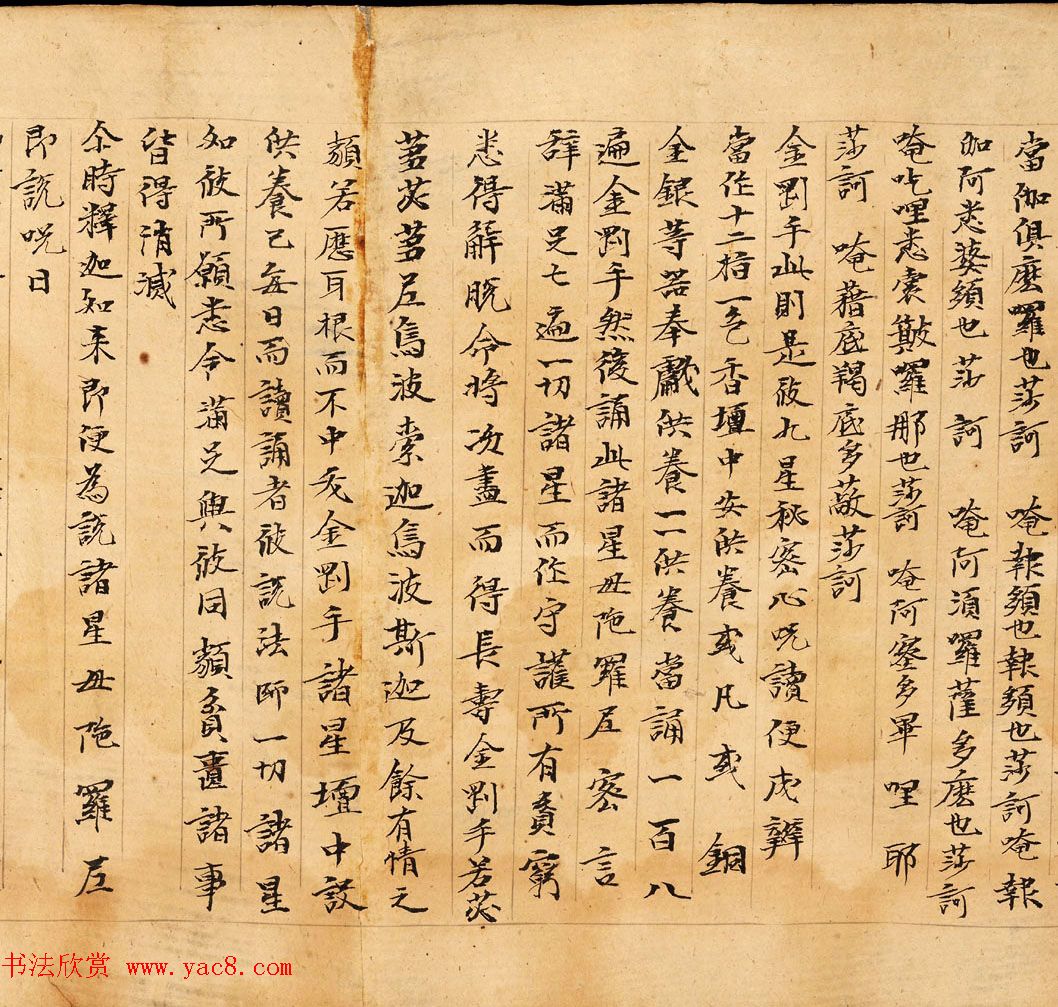 當伽俱麼囉也莎訶　唵報頞也報頞也莎訶唵報
伽阿悉婆頞也莎訶　唵阿須囉薩多麼也莎訶
唵吃哩悉裳皺囉那也莎訶　唵阿蜜多畢哩耶
莎訶　唵藉底羯底多蔽莎訶
金剛手此則是彼九星秘密心咒讀便成辦
當作十二指一色香壇中安供養或凡或銅
金銀等器奉獻供養一一供養當誦一百八
遍金剛手然後誦此諸星母陁羅尼密言
辞滿足七遍一切諸星而作守護所有貧窮
悉得解脫命將次盡而得長壽金剛手若苾
蒭苾蒭尼烏波索迦烏波斯迦及餘有情之
類若歷耳根而不中夭金剛手諸星壇中設
供養已每日而讀誦者彼說法師一切諸星
如彼所願悉令滿足與彼同類貧匱諸事
皆得消滅
尒時釋迦如来即便為說諸星母陁羅尼
即說咒曰
书法欣赏 www.yac8.com